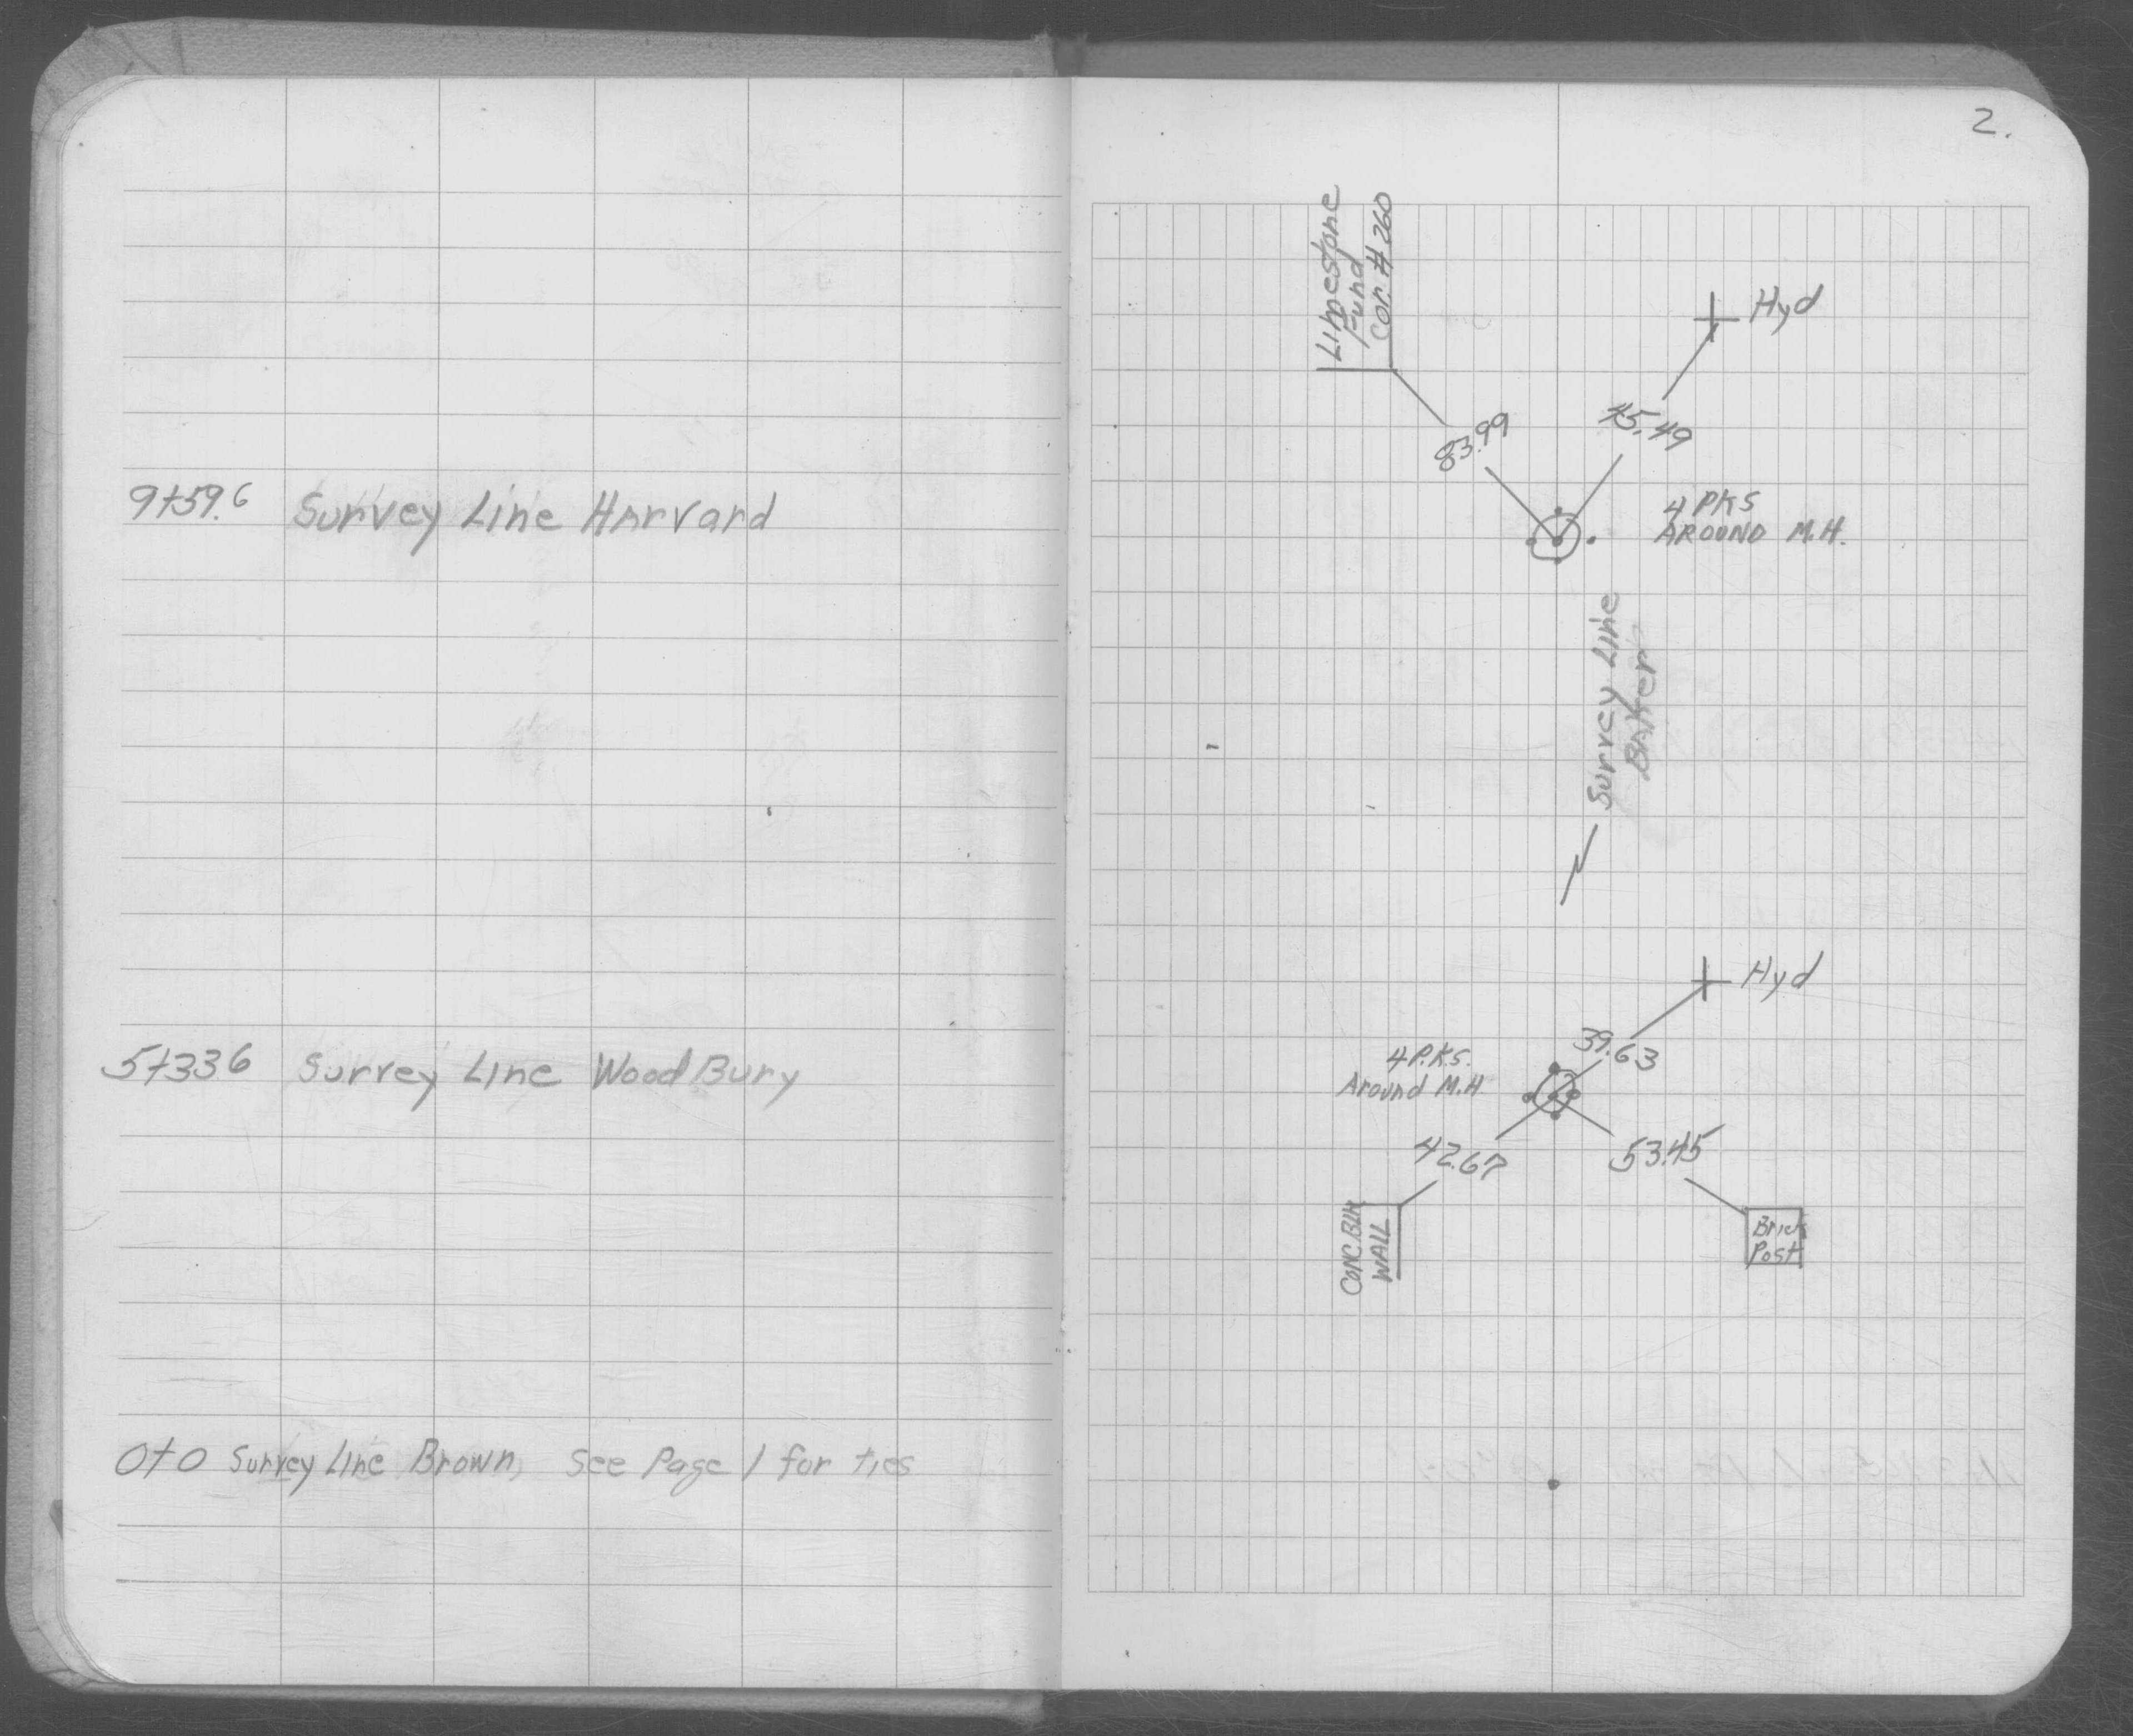 9+59.6 Survey Line Harvard
5+33.6 Survey Line WoodBury
0+0 Survey Line Brown, See Page 1 for ties
2.
Limestone
Fund
Cor. # 260
Hyd
83.99
45.49
4 PKS
AROUND M.H.
Survey Line
Baker
Hyd
39.63
4 P.K.S.
Around M.H.
42.67
53.45
CONC.BLK
WALL
Brick
Post